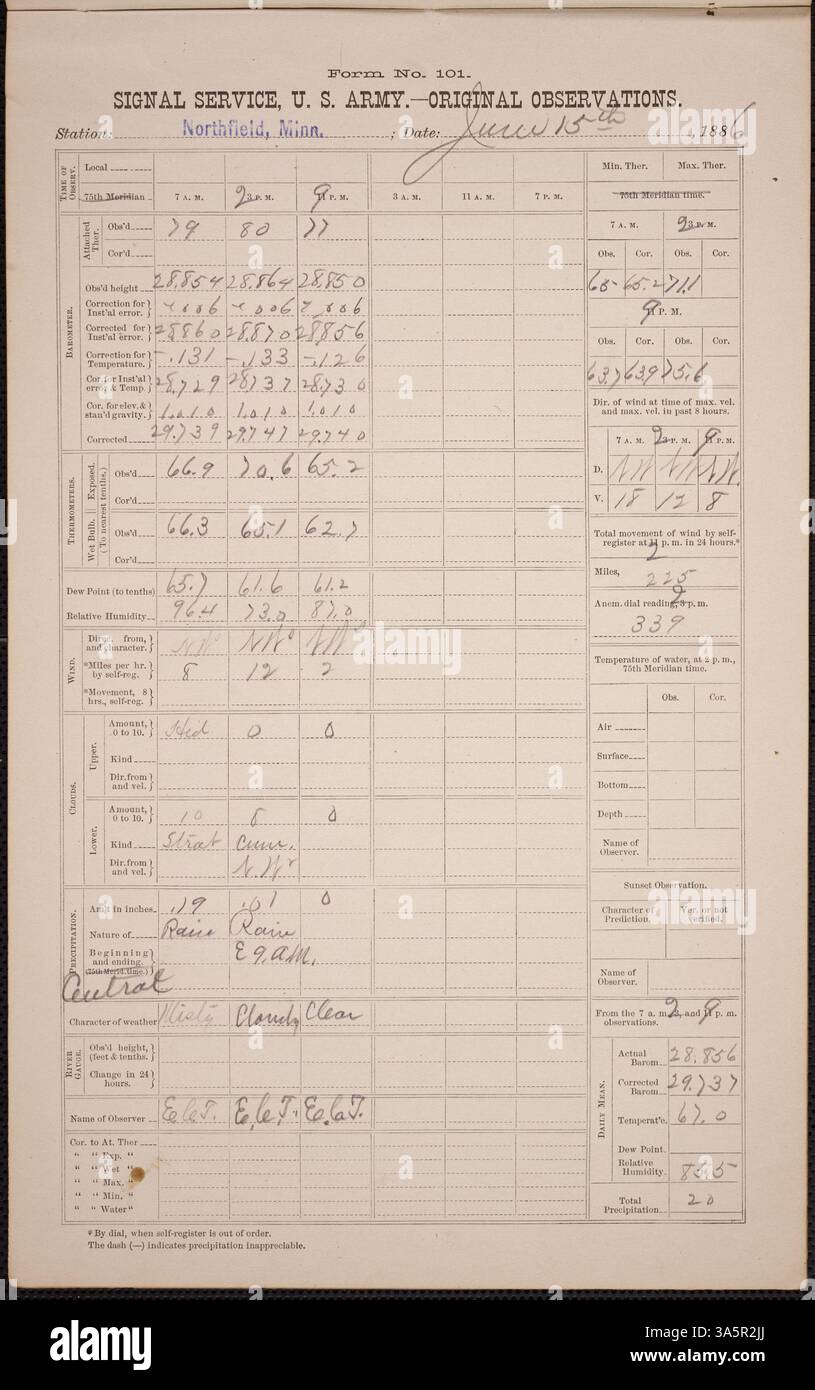 Form No. 101.
SIGNAL SERVICE, U. S. ARMY.—ORIGINAL OBSERVATIONS.
Station: Northfield, Minn. ; Date: June 15th , 1886
TIME OF OBSERV.
Local
75th Meridian 7 A. M. 2 3 P. M. 9 11 P. M. 3 A. M. 11 A. M. 7 P. M.
BAROMETER.
Attached Ther.
Obs'd 79 80 77
Cor'd
Obs'd height 28.854 28.864 28.850
Correction for Inst'al error. +.006 +.006 +.006
Corrected for Inst'al error. 28.860 28.870 28.856
Correction for Temperature. -.131 -.133 -.126
Cor for Inst'al error & Temp. 28.729 28.737 28.730
Cor. for elev. & stan'd gravity. 1.010 1.010 1.010
Corrected 29.739 29.747 29.740
THERMOMETERS.
Wet Bulb. Exposed.
(To nearest tenths.)
Obs'd 66.9 70.6 65.2
Cor'd
Obs'd 66.3 65.1 62.7
Cor'd
Dew Point (to tenths) 65.7 61.6 61.2
Relative Humidity 96.4 73.0 87.0
WIND.
Direc. from, and character. NW NW NW
*Miles per hr. by self-reg. 8 12 2
*Movement, 8 hrs., self-reg.
CLOUDS.
Upper.
Amount, 0 to 10. Hid 0 0
Kind
Dir. from and vel.
Lower.
Amount, 0 to 10. 10 8 0
Kind Strat Cum.
Dir. from and vel. N.W
PRECIPITATION.
Am't in inches. .19 .01 0
Nature of Rain Rain
Beginning and ending. (75th Merid. time.) E 9 A.M.
Central
Character of weather Misty Cloudy Clear
RIVER GAUGE.
Obs'd height, (feet & tenths.)
Change in 24 hours.
Name of Observer E.C.T. E.C.T. E.C.T.
Cor. to At. Ther
" " Exp. "
" " Wet "
" " Max. "
" " Min. "
" " Water "
*By dial, when self-register is out of order.
The dash (—) indicates precipitation inappreciable.
Min. Ther. Max. Ther.
75th Meridian time.
7 A. M. 2 3 P. M.
Obs. Cor. Obs. Cor.
65 65.2 71.1
9 11 P. M.
Obs. Cor. Obs. Cor.
63.7 63.9 75.6
Dir. of wind at time of max. vel. and max. vel. in past 8 hours.
7 A. M. 2 3 P. M. 9 11 P. M.
D. NW NW NW.
V. 18 12 8
Total movement of wind by self-register at 11 p. m. in 24 hours.*
2
Miles, 225
Anem. dial reading, 2 3 p. m.
339
Temperature of water, at 2 p. m., 75th Meridian time.
Obs. Cor.
Air
Surface
Bottom
Depth
Name of Observer.
Sunset Observation.
Character of Prediction. Ver. or not verified.
Name of Observer.
From the 7 a. m., 2 3, and 9 11 p. m. observations.
DAILY MEAN.
Actual Barom. 28.856
Corrected Barom. 29.737
Temperat'e. 67.0
Dew Point.
Relative Humidity. 85.5
Total Precipitation. 20
alamy
Image ID: 3A5R2JJ
www.alamy.com